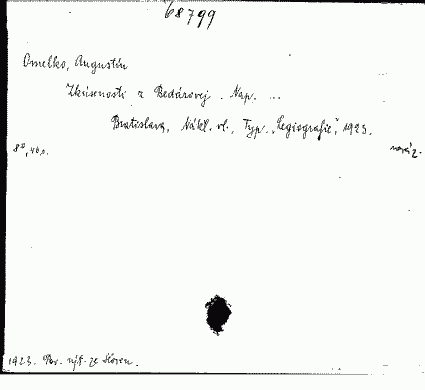 68799
Omelko, Augustín
Zkúsenosti z Bedárovej. Nap. ...
Bratislava, Nákl. vl., Typ. „Legiografie“, 1923.
8°, 46 s.
1923. Pov. výt. ze Sloven.